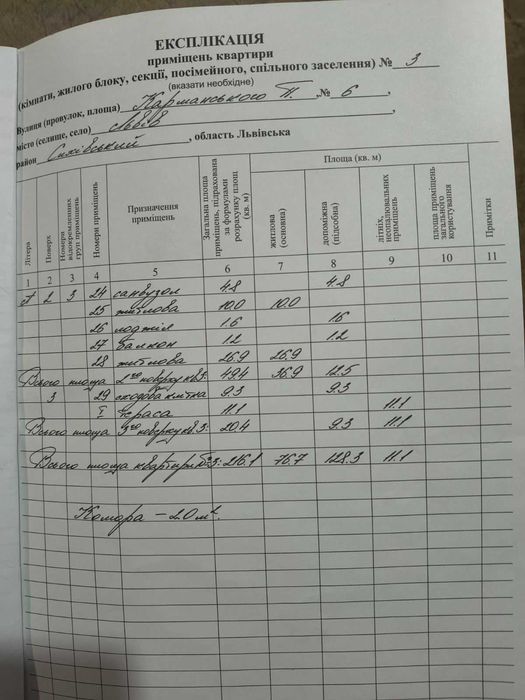 ЕКСПЛІКАЦІЯ
приміщень квартири
(кімнати, жилого блоку, секції, посімейного, спільного заселення) № 3
(вказати необхідне)
Вулиця (провулок, площа) Карманського П. , № 6 ,
місто (селище, село) Львів ,
район Сихівський , область Львівська
Літера Поверх Номери відокремлених груп приміщень Номери приміщень Призначення приміщень Загальна площа приміщень, підрахована за формулами розрахунку площ (кв. м) Площа (кв. м) житлова (основна) допоміжна (підсобна) літніх, неопалювальних приміщень площа приміщень загального користування Примітки
1 2 3 4 5 6 7 8 9 10 11
А 2 3 24 санвузол 4.8 4.8
25 житлова 10.0 10.0
26 лоджія 1.6 1.6
27 балкон 1.2 1.2
28 житлова 26.9 26.9
Всього площа 2го поверху кв.3: 49.4 36.9 12.5
3 29 сходова клітка 9.3 9.3
I тераса 11.1 11.1
Всього площа 3го поверху кв.3: 20.4 9.3 11.1
Всього площа квартири №3: 216.1 76.7 128.3 11.1
Комора – 2.0 м².